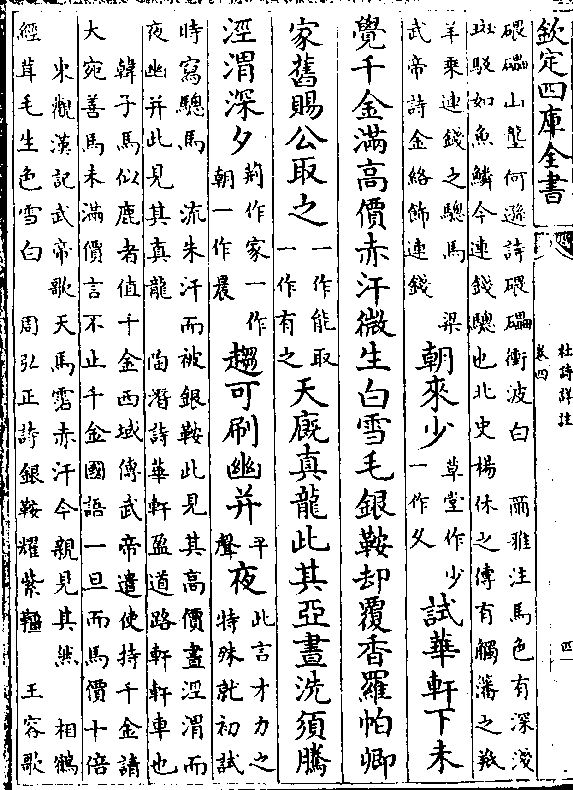 欽定四庫全書
杜詩詳注
卷四
四
磈礧山壟何遜詩磈礧衝波白 爾雅注馬色有深淺
斑駁如魚鱗今連錢驄也北史楊休之傳有觸藩之羝
羊乘連錢之驄馬 梁
武帝詩金絡飾連錢
朝來少
草堂作少
一作久
試華軒下未
覺千金滿高價赤汗微生白雪毛銀鞍却覆香羅帕卿
家舊賜公取之
一作能取
一作有之
天廐真龍此其亞晝洗須騰
涇渭深夕
荊作家一作
朝一作晨
趨可刷幽并
平
聲
夜
此言才力之
特殊就初試
時寫驄馬 流朱汗而被銀鞍此見其高價晝涇渭而
夜幽并此見其真龍 陶潛詩華軒盈道路軒軒車也
韓子馬似鹿者值千金西域傳武帝遣使持千金請
大宛善馬未滿價言不止千金國語一旦而馬價十倍
東觀漢記武帝歌天馬霑赤汗今親見其然 相鶴
經茸毛生色雪白 周弘正詩銀鞍耀紫韁 王容歌